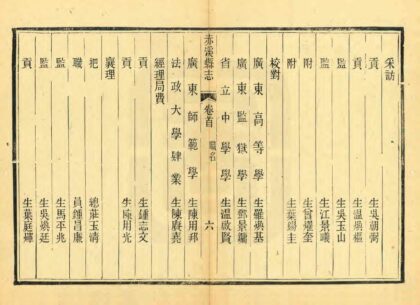 采訪
貢 生吳朝弼
貢 生溫煥樞
監 生吳玉山
監 生江景曦
附 生曾燿奎
附 生葉錫圭
校對
廣東高等學 生羅煥基
廣東監獄學 生鄧景
省立中學學 生溫啟賢
赤溪縣志 卷首 職名 六
廣東師範學 生陳用邦
法政大學肄業 生陳賡堯
經理局費
貢 生鍾志文
貢 生陳用光
襄理
把 總葉玉清
職 員鍾昌廉
監 生馬平兆
監 生吳煥廷
貢 生葉庭輝